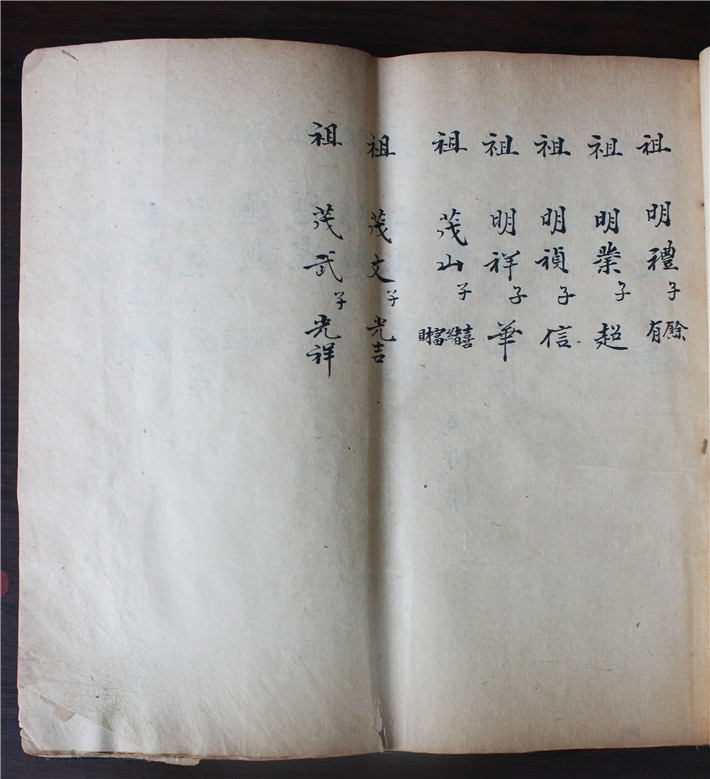 祖 明禮 子 餘 有
祖 明業 子 超
祖 明禎 子 信
祖 明祥 子 華
祖 茂山 子 喜 富 財
祖 茂文 子 光吉
祖 茂武 子 光祥